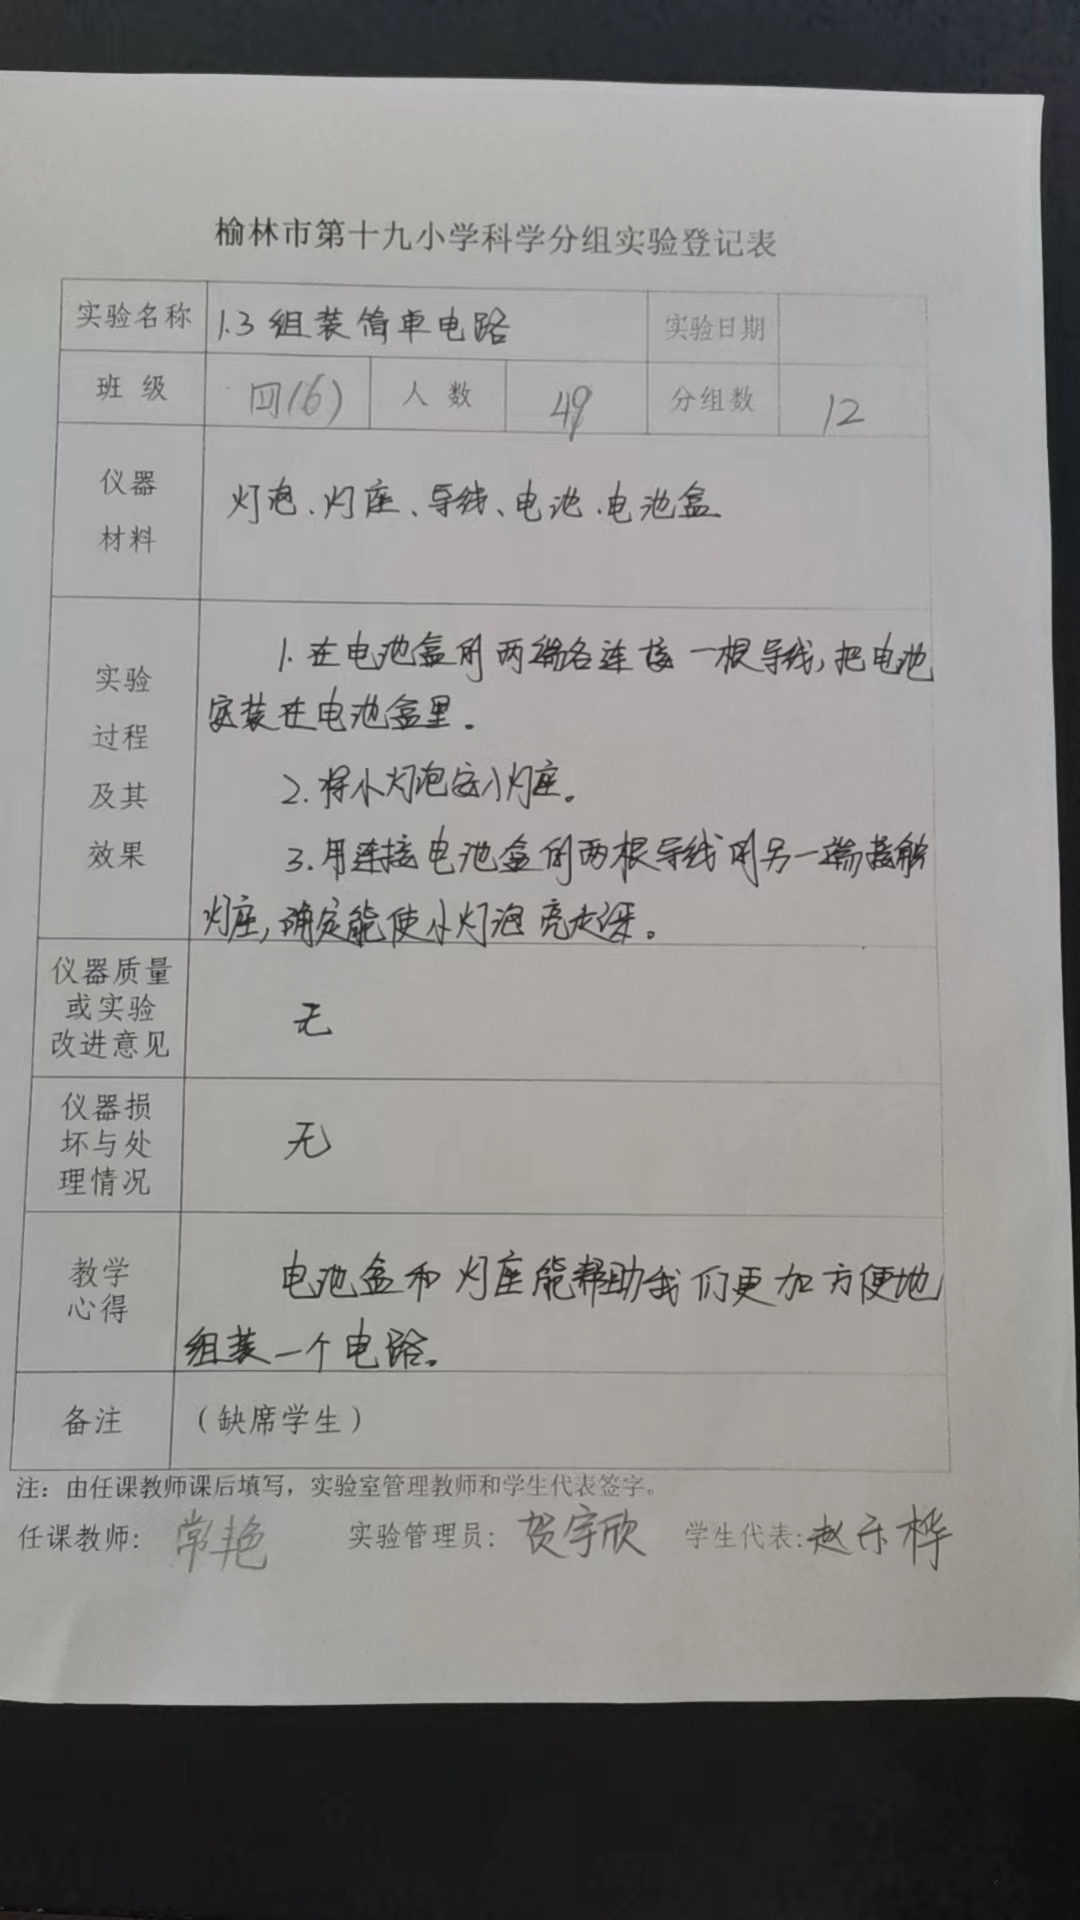 榆林市第十九小学科学分组实验登记表
实验名称 1.3 组装简单电路 实验日期
班级 四(6) 人数 49 分组数 12
仪器
材料
灯泡、灯座、导线、电池、电池盒
实验
过程
及其
效果
1. 在电池盒的两端各连接一根导线,把电池
安装在电池盒里。
2. 将小灯泡安入灯座。
3. 用连接电池盒的两根导线的另一端接触
灯座,确定能使小灯泡亮起来。
仪器质量
或实验
改进意见
无
仪器损
坏与处
理情况
无
教学
心得
电池盒和灯座能帮助我们更加方便地
组装一个电路。
备注 (缺席学生)
注：由任课教师课后填写，实验室管理教师和学生代表签字。
任课教师: 常艳 实验管理员: 贺宇欣 学生代表: 赵